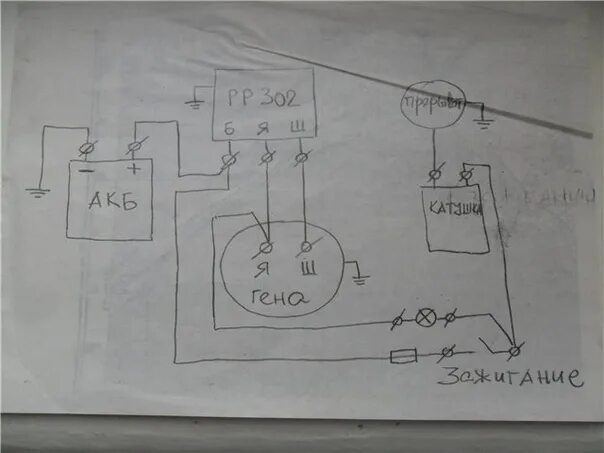 РР 302
Б Я Ш
прерыват
- +
АКБ
КАТУШКА
Я Ш
гена
Зажигание